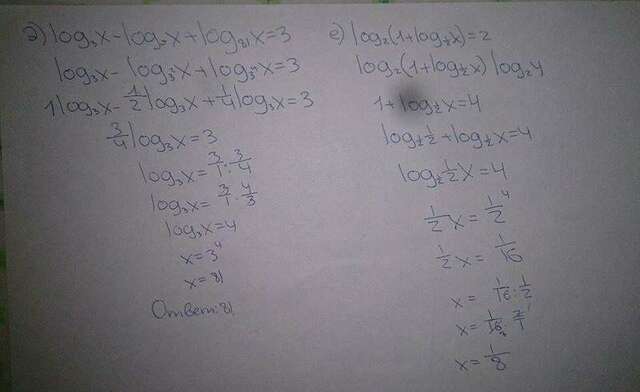 д) log₃x-log₉x+log₈₁x=3
log₃x-log₃²x+log₃⁴x=3
1log₃x-1/2log₃x+1/4log₃x=3
3/4log₃x=3
log₃x=3/1:3/4
log₃x=3/1·4/3
log₃x=4
x=3⁴
x=81
Ответ:81
е) log₂(1+log½x)=2
log₂(1+log½x)log₂4
1+log½x=4
log½ 1/2+log½x=4
log½ 1/2x=4
1/2x=1/2⁴
1/2x=1/16
x=1/16:1/2
x=1/16·2/1
x=1/8